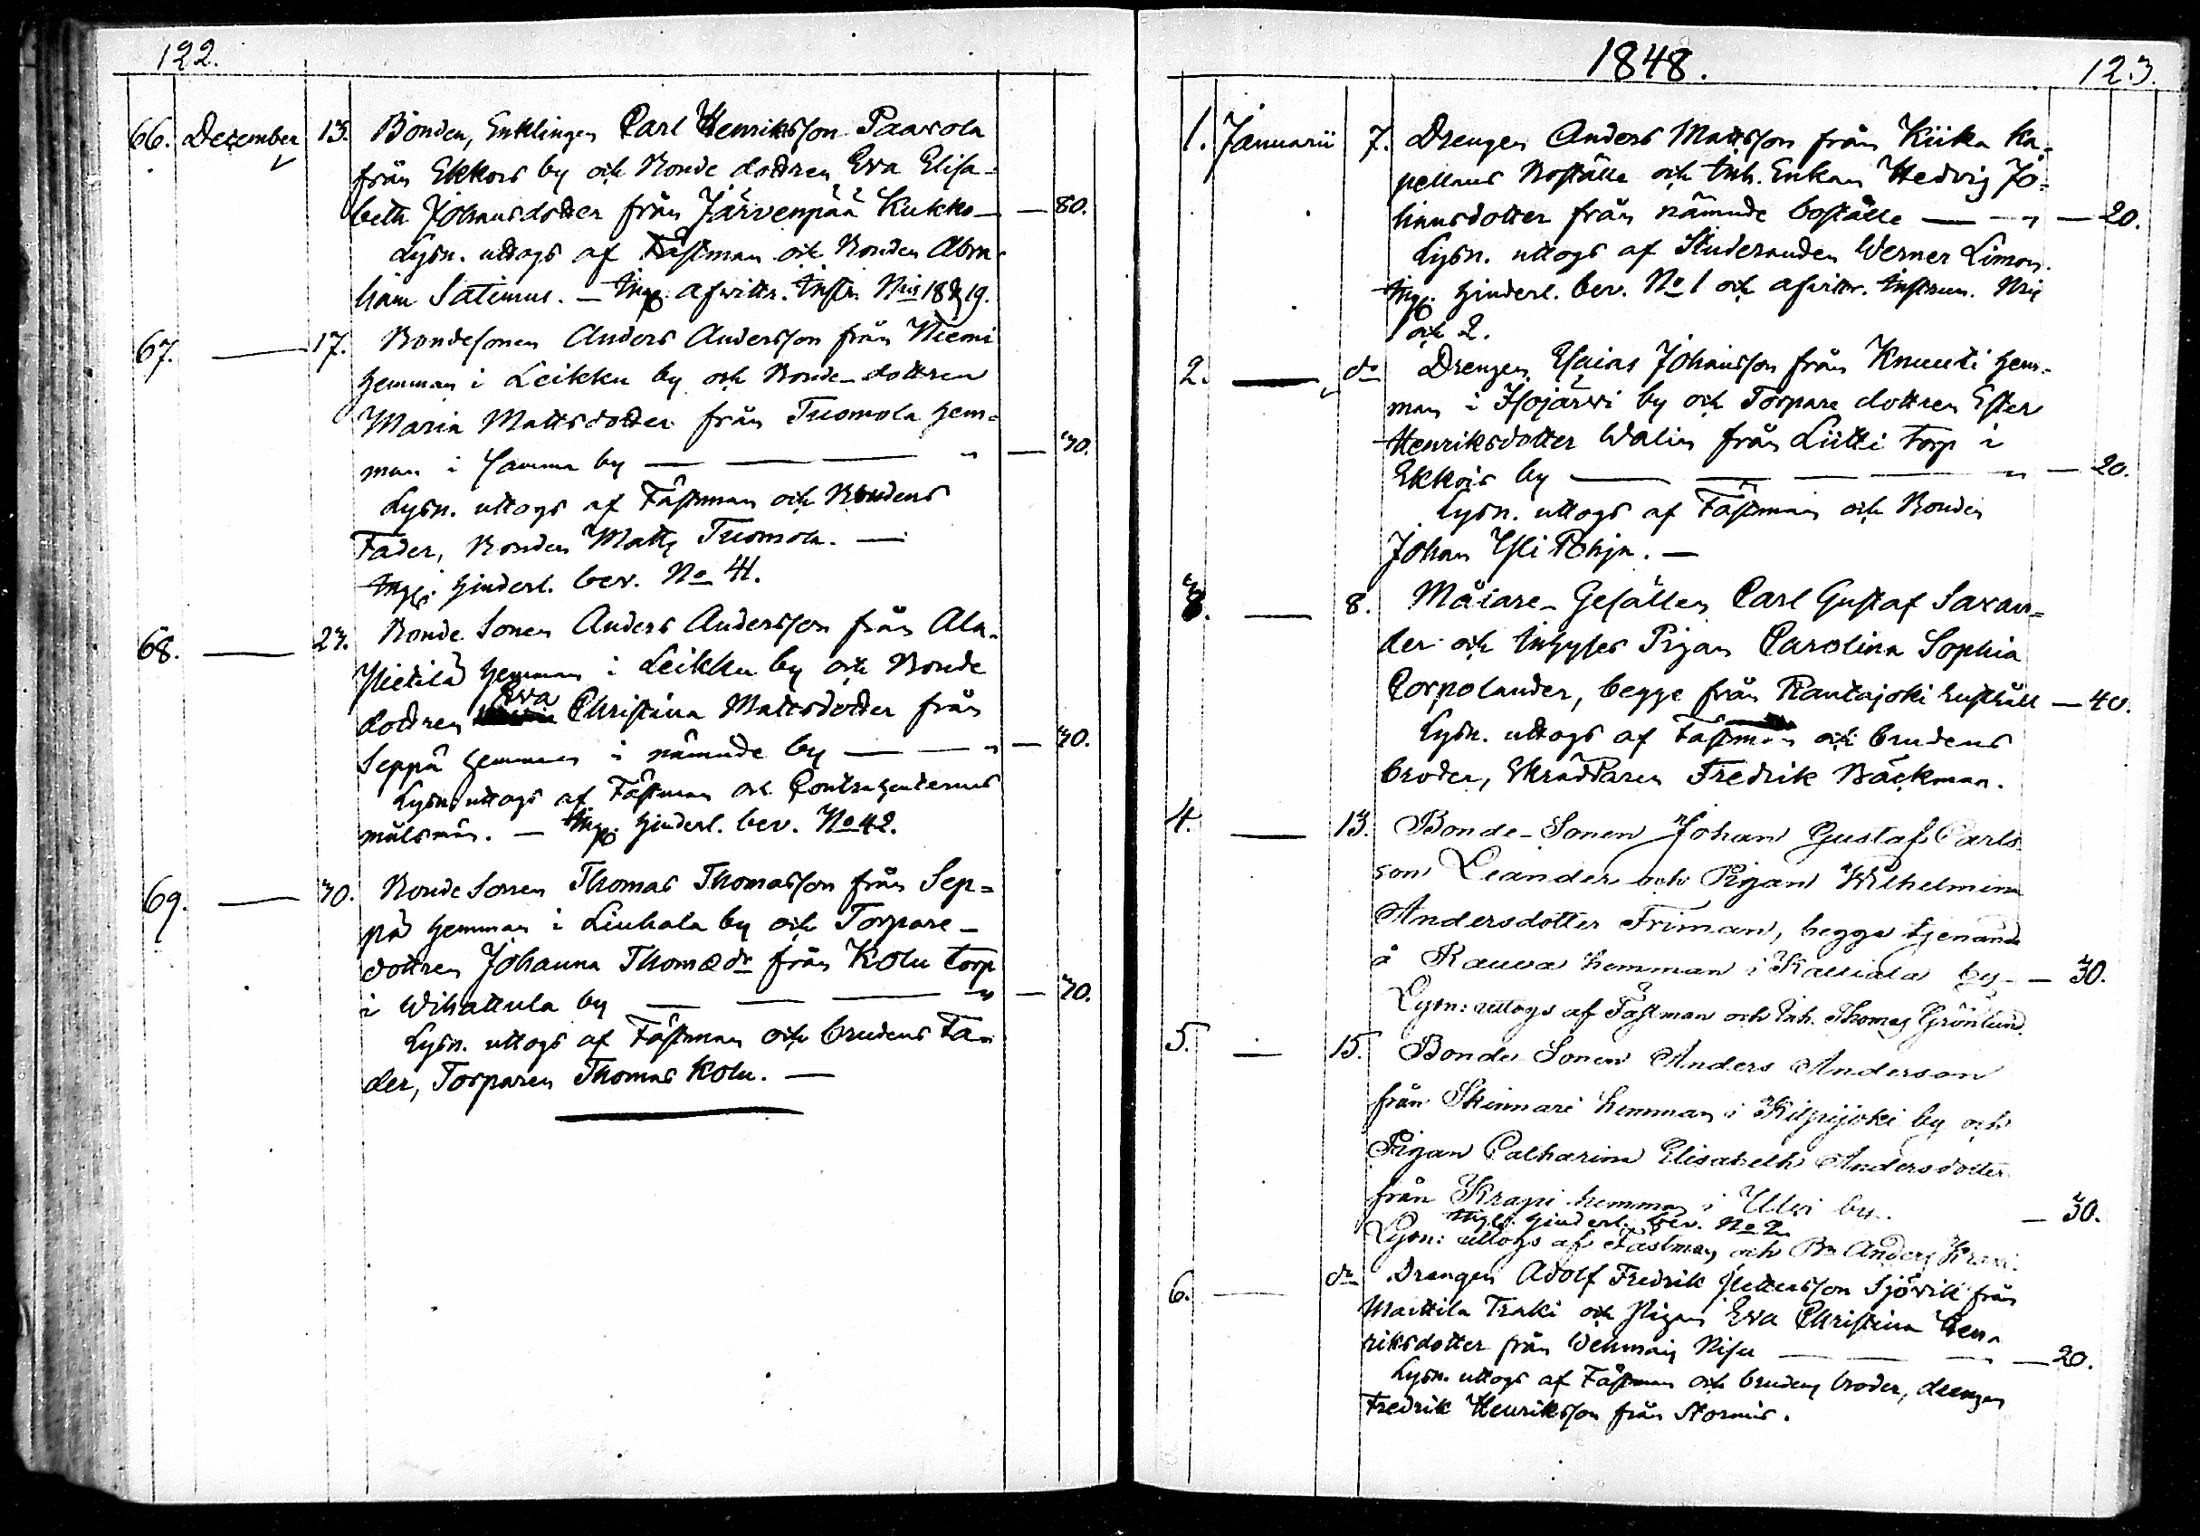 122.
66. December 13. Bonden, Enklingen Carl Henriksson Paavola
från Ekkois by och Bonde dottren Eva Elisa-
beth Johansdotter från Järvenpää Kukko — — 80.
Lysn. uttogs af Fästman och Bonden Abra-
ham Saterius. — Ing. afvittr. Instr. Nris 18 & 19.
67. — 17. Bondesonen Anders Andersson från Niemi
hemman i Leikku by och Bonde-dottren
Maria Mattsdotter från Tuomola hem-
man i samma by — — — " — 30.
Lysn. uttogs af Fästman och Brudens
Fader, Bonden Matts Tuomola. —
Ing. hinderl. bev. No 41.
68. — 23. Bonde Sonen Anders Andersson från Ala-
Pietilä hemman i Leikku by och Bonde
dottren Eva Christina Mattsdotter från
Seppä hemman i nämnde by — — " — 30.
Lysn. uttogs af Fästman och Contrahenternes
målsmän. — Ing. hinderl. bev. No 42.
69. — 30. Bonde Sonen Thomas Thomasson från Sep-
pä hemman i Liuhala by och Torpare-
dottren Johanna Thomædr från Kolu torp
i Wihattula by — — — " — 30.
Lysn. uttogs af Fästman och brudens Fa-
der, Torparen Thomas Kolu. —
1848.
123.
1. Januarii 7. Drengen Anders Mattsson från Kiika Ka-
pellans Boställe och Inh. Enkan Hedvig Jo-
hansdotter från nämnde boställe — — " — 20.
Lysn. uttogs af Studeranden Werner Limon.
Ing. hinderl. bev. No 1 och afvittr. Instrum. Nris
1 och 2.
2. — do Drengen Esaias Johansson från Knuuti hem-
man i Isojärvi by och Torpare dottren Ester
Henriksdotter Walin från Liitti torp i
Ekkois by — — — — " — 20.
Lysn. uttogs af Fästman och Bonden
Johan Yli Pohja. —
3. — 8. Målare-Gesällen Carl Gustaf Savan-
der och Inhyses Pigan Carolina Sophia
Corpolander, begge från Rautajoki Rusthåll — 40.
Lysn. uttogs af Fästman och brudens
broder, Skräddaren Fredrik Bäckman.
4. — 13. Bonde-Sonen Johan Gustaf Carls-
son Leander och Pigan Wilhelmina
Andersdotter Friman, begge tjenande
å Kauva hemman i Kalliala by — — 30.
Lysn: uttogs af Fästman och Inh. Thomas Grönlund.
5. — 15. Bonde Sonen Anders Anderson
från Skinnari hemman i Kilpijoki by och
Pigan Catharina Elisabeth Andersdotter
från Krapi hemman i Ulvi by. — 30.
Ing. hinderl. bev. No 2.
Lysn: uttogs af Fästman och Bn Anders Krapi.
6. — do Drengen Adolf Fredrik Pettersson Sjövik från
Marttila Traki och Pigan Eva Christina Hen-
riksdotter från Vehmais Nisu — — — 20.
Lysn. uttogs af Fästman och brudens broder, drengen
Fredrik Henriksson från Stormis.